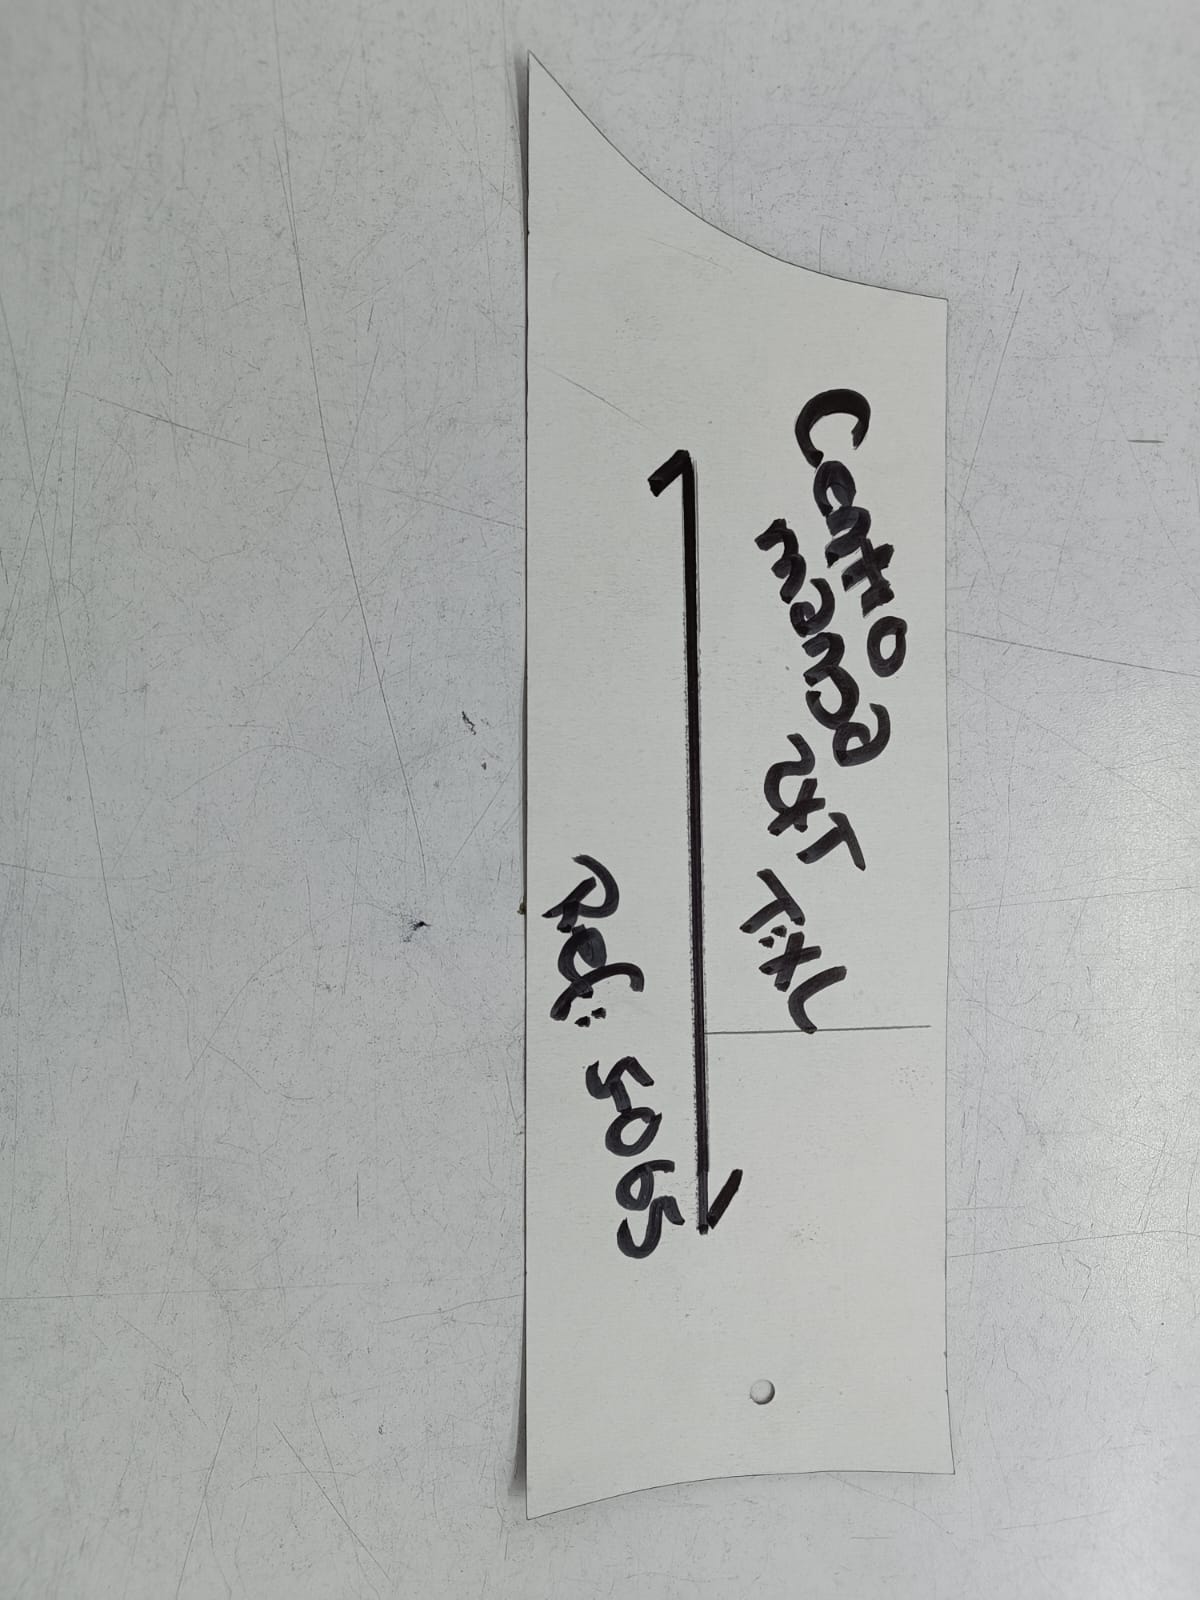 Centro
manga
T:XL
Ref: 5065